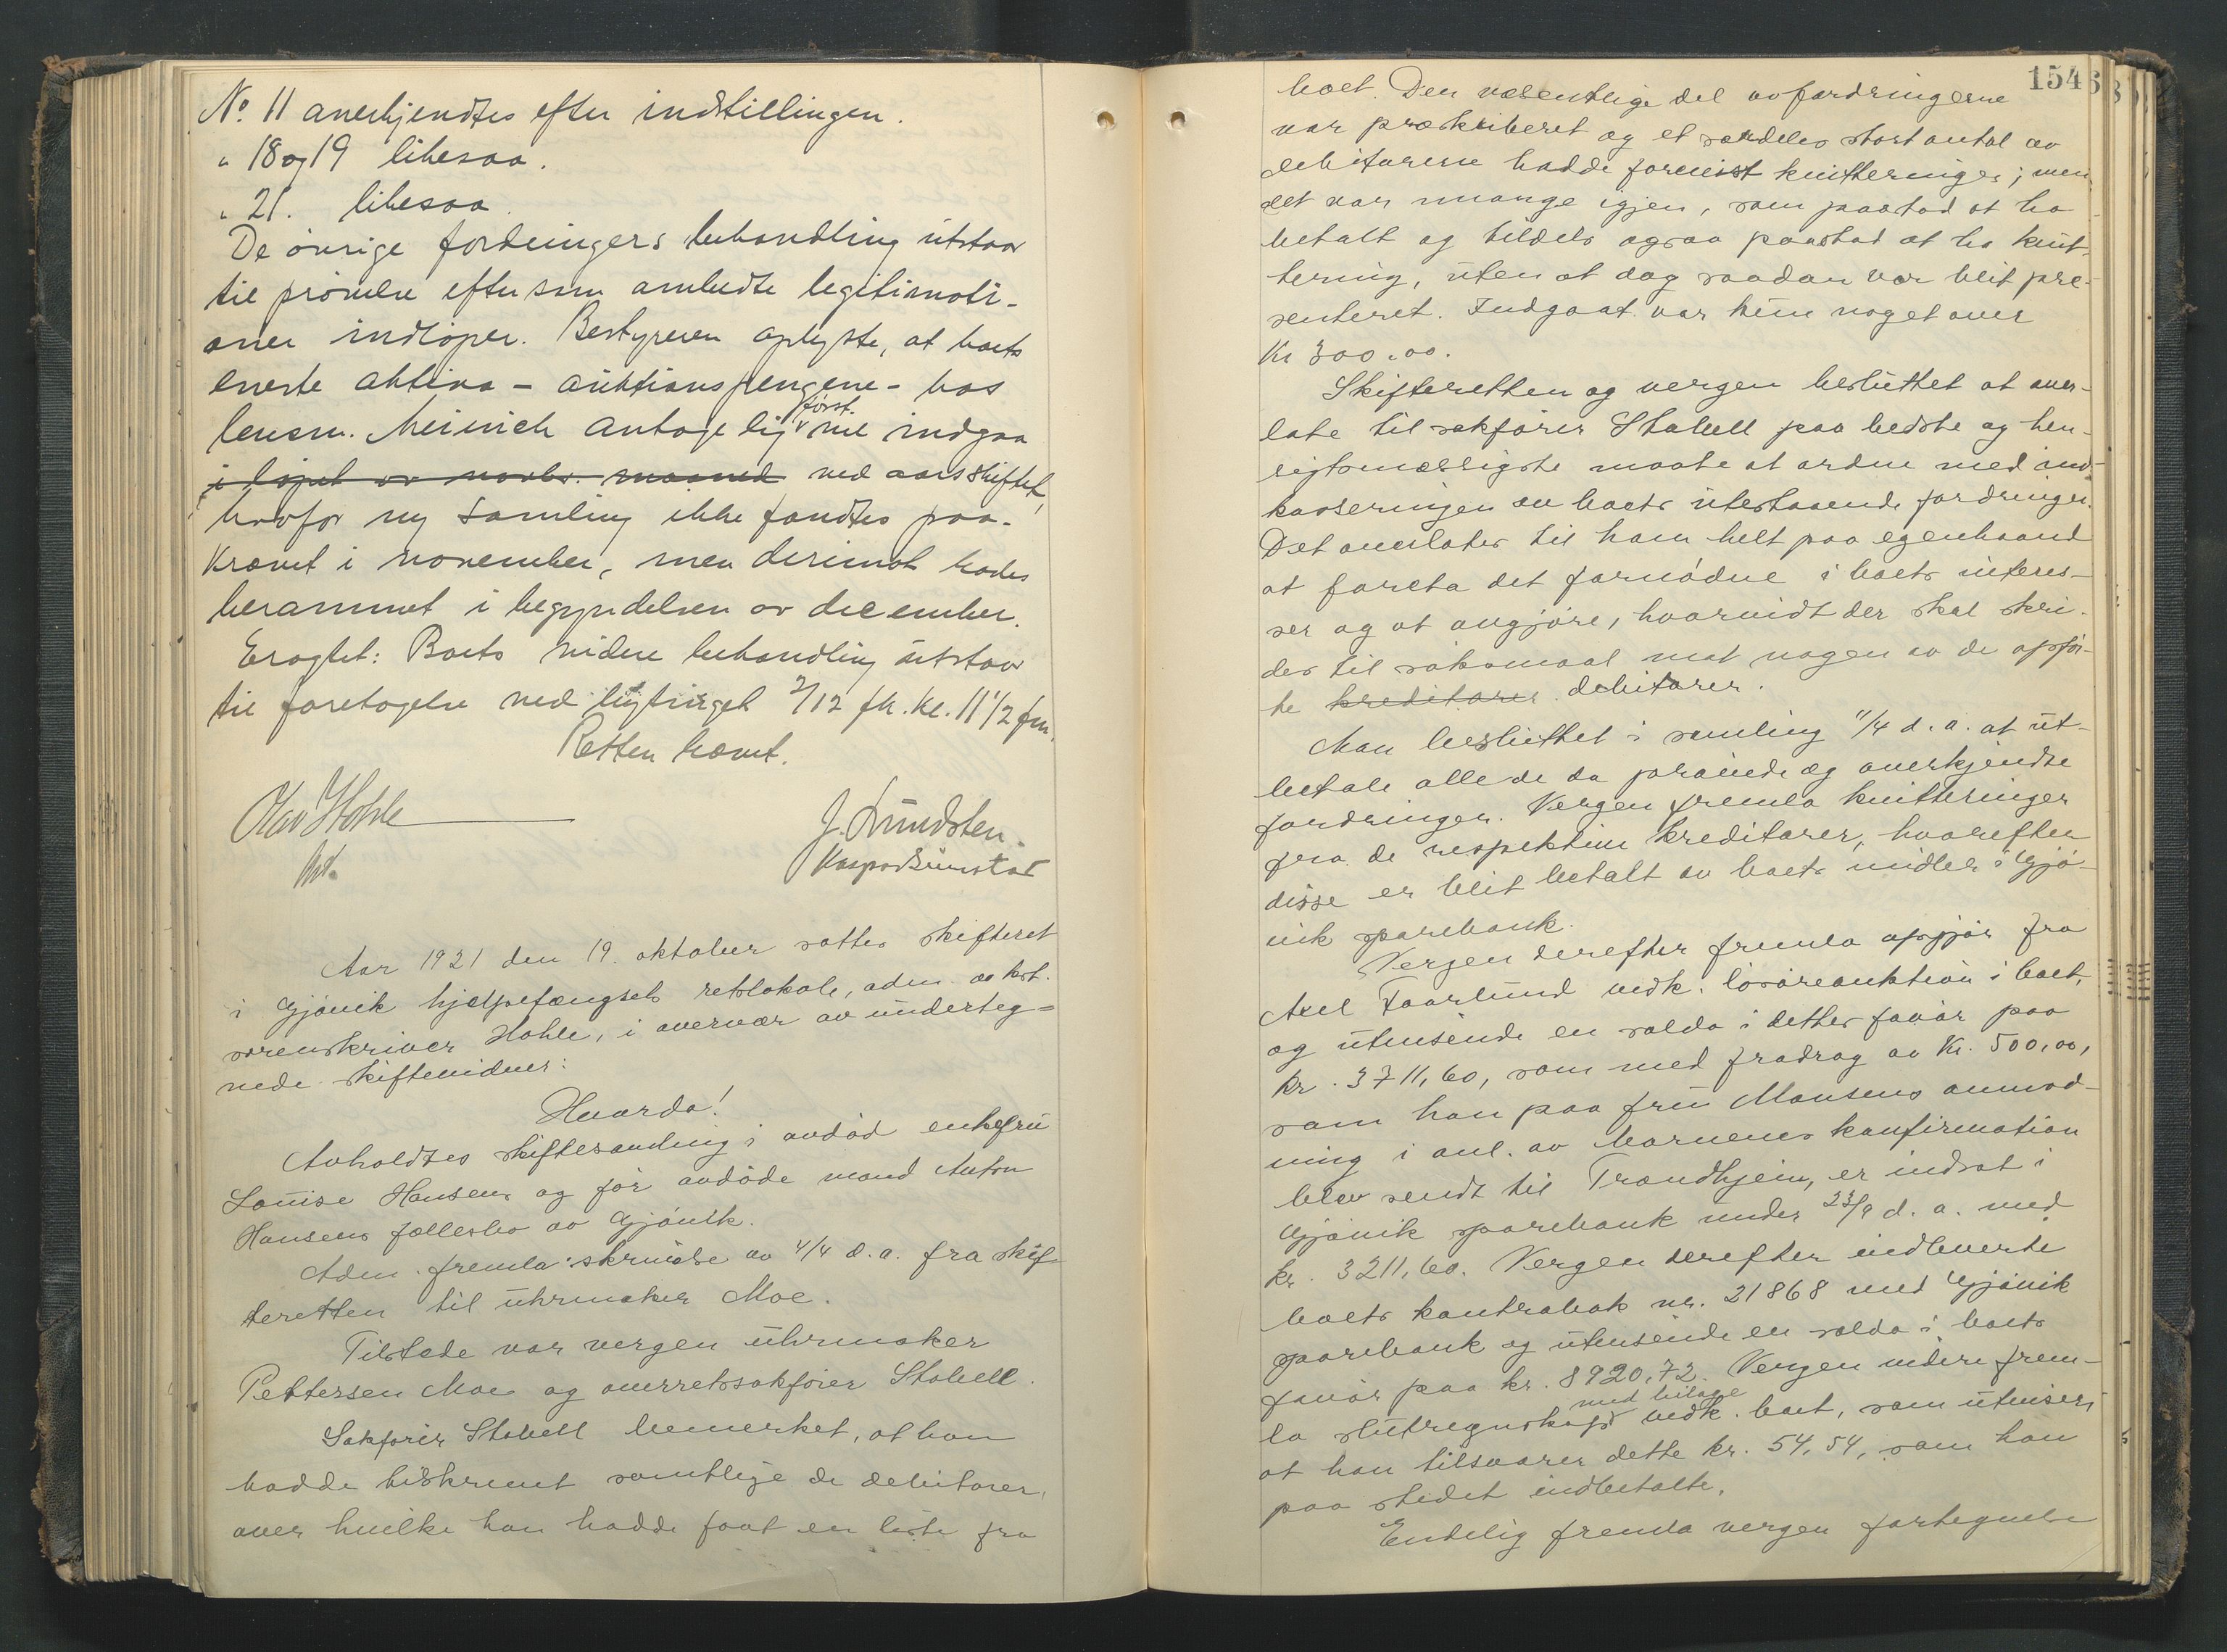 No 11 anerkjendtes efter indstillingen.
" 18 og 19 likesaa.
" 21. likesaa.
De øvrige fordringers behandling utstaar
til prøvelse eftersom anbudte legitimati-
oner indløper. Bestyreren oplyste, at boets
eneste aktiva - auktionspengene - hos
lensm. Meinich antagelig først vil indgaa
i løpet av novbr. maaned ved aarsskiftet,
hvorfor ny samling ikke fandtes paa-
krævet i november, men derimot hades
berammet i begyndelsen av december.
Eragtet: Boets videre behandling utstaar
til foretagelse ved bygtinget 2/12 fk. kl. 11 1/2 fm.
Retten hævet.
Olav Hohle
kst.
J. Lundsten.
Kaspar Bunstad
Aar 1921 den 19. oktober sattes skifteret
i Gjøvik hjælpefængsels retslokale, adm. av kst.
sorenskriver Hohle, i overvær av underteg=
nede skiftevidner:
Hvorda!
Avholdtes skiftesamling i avdød enkefru
Louise Hansens og før avdøde mand Anton
Hansens fællesbo av Gjøvik.
Adm. fremla: skrivelse av 4/4 d.a. fra skif-
teretten til uhrmaker Moe.
Tilstede var vergen uhrmaker
Pettersen Moe og overretssakfører Stabell.
Sakfører Stabell bemerket, at han
hadde tilskrevet samtlige de debitorer,
over hvilke han hadde faat en liste fra
1546
boet. Den væsentlige del av fordringerne
var præskriberet og et særdeles stort antal av
debitorene hadde forevist kvitteringer; men
det var mange igjen, som paastod at ha
betalt og tildels ogsaa paastod at ha kvit-
tering, uten at dog saadan var blit præ-
senteret. Indgaat var kun noget over
Kr 300.00.
Skifteretten og vergen besluttet at over-
late til sakfører Stabell paa bedste og hen-
sigtsmæssigste maate at ordne med ind-
kasseringen av boets utestaaende fordringer.
Det overlates til ham helt paa egenhaand
at foreta det fornødne i boets interes-
ser og at avgjøre, hvorvidt der skal skri-
des til søksmaal mot nogen av de opfør-
te kreditorer debitorer.
Man besluttet i samling 11/4 d.a. at ut-
betale alle de da prøvede og anerkjendte
fordringer. Vergen fremla kvitteringer
fra de respektive kreditorer, hvorefter
disse er blit betalt av boets midler i Gjø-
vik sparebank.
Vergen derefter fremla opgjør fra
Axel Faarlund vedk. løsøreauktion i boet,
og utvisende en saldo i dettes favør paa
kr. 3711,60, som med fradrag av Kr. 500,00,
som han paa fru Monsens anmod-
ning i anl. av barnenes konfirmation
blev sendt til Trondhjem, er indsat i
Gjøvik sparebank under 23/9 d.a. med
kr. 3211,60. Vergen derefter indleverte
boets kontrabok nr. 21868 med Gjøvik
sparebank og utvisende en saldo i boets
favør paa kr. 8920,72. Vergen videre frem-
la slutregnskap med bilage vedk. boet, som utviser,
at han tilsvarer dette kr. 54,54, som han
paa stedet indbetalte.
Endelig fremla vergen fortegnelse